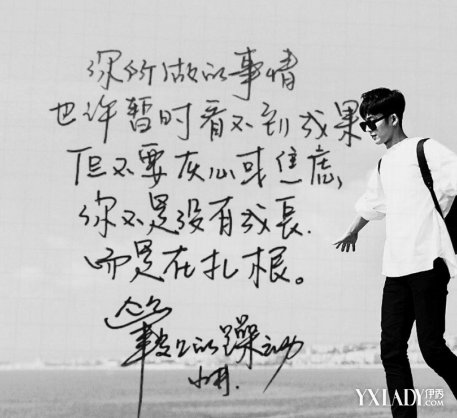 你所做的事情
也许暂时看不到成果
但不要灰心或焦虑,
你不是没有成长.
而是在扎根。
的躁动
YXLADY.COM伊秀